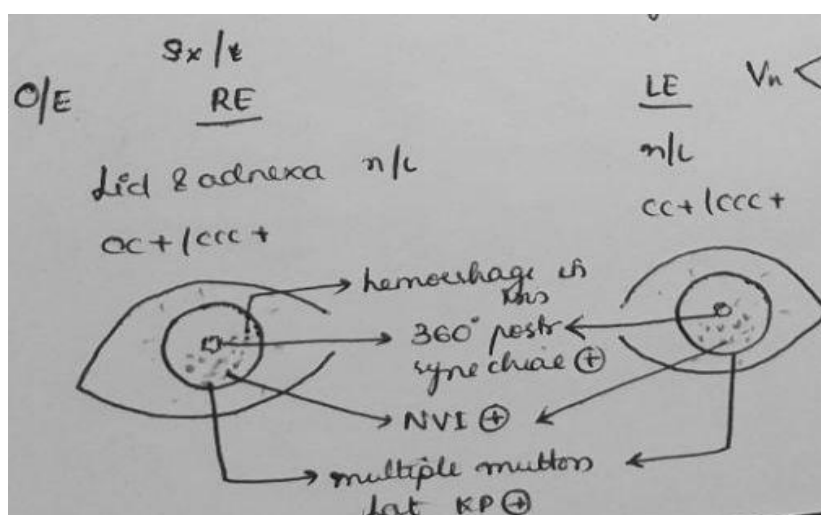 O/E RE LE Vn
Lid & adnexa n/L n/L
CC+/CCC+ CC+/CCC+
hemorrhage in
360° postr
synechiae ⊕
NVI ⊕
multiple mutton
fat KP ⊕